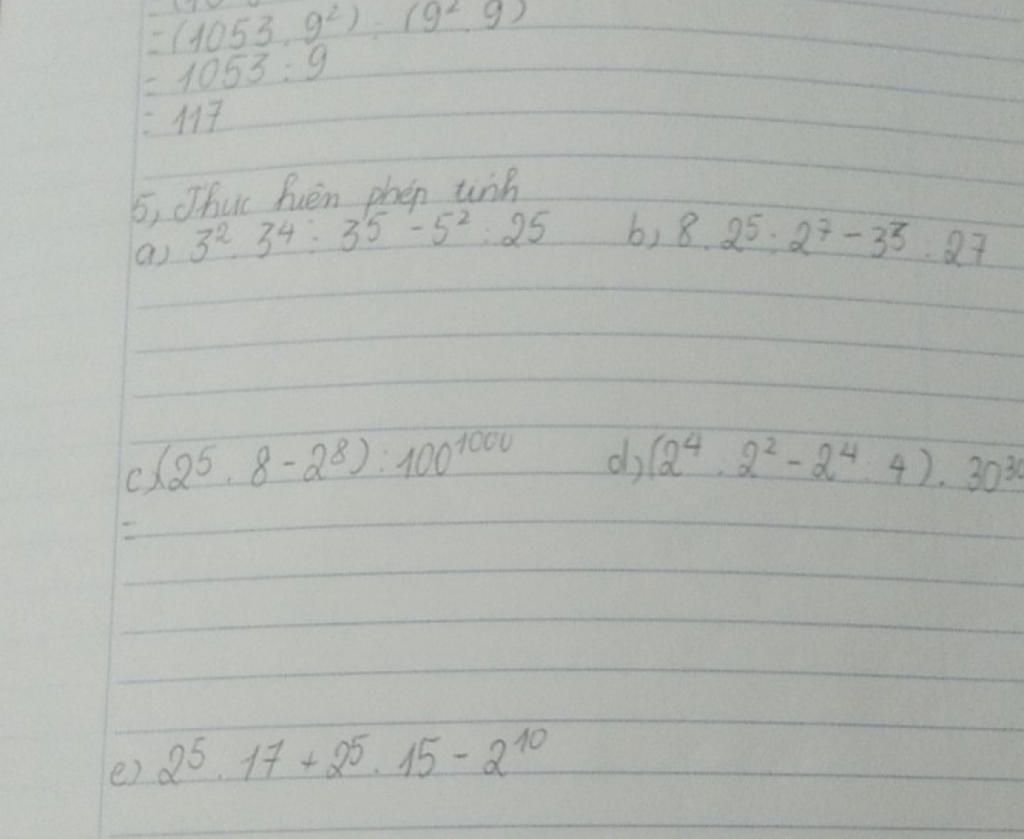 = (1053 . 9²) : (9² . 9)
= 1053 : 9
= 117
5, Thực hiện phép tính
a) 3² . 3⁴ : 3⁵ - 5² : 25 b) 8 . 2⁵ : 2⁷ - 3³ : 27
c) (2⁵ . 8 - 2⁸) : 100¹⁰⁰⁰ d) (2⁴ . 2² - 2⁴ . 4) . 30³⁰
=
e) 2⁵ . 17 + 2⁵ . 15 - 2¹⁰